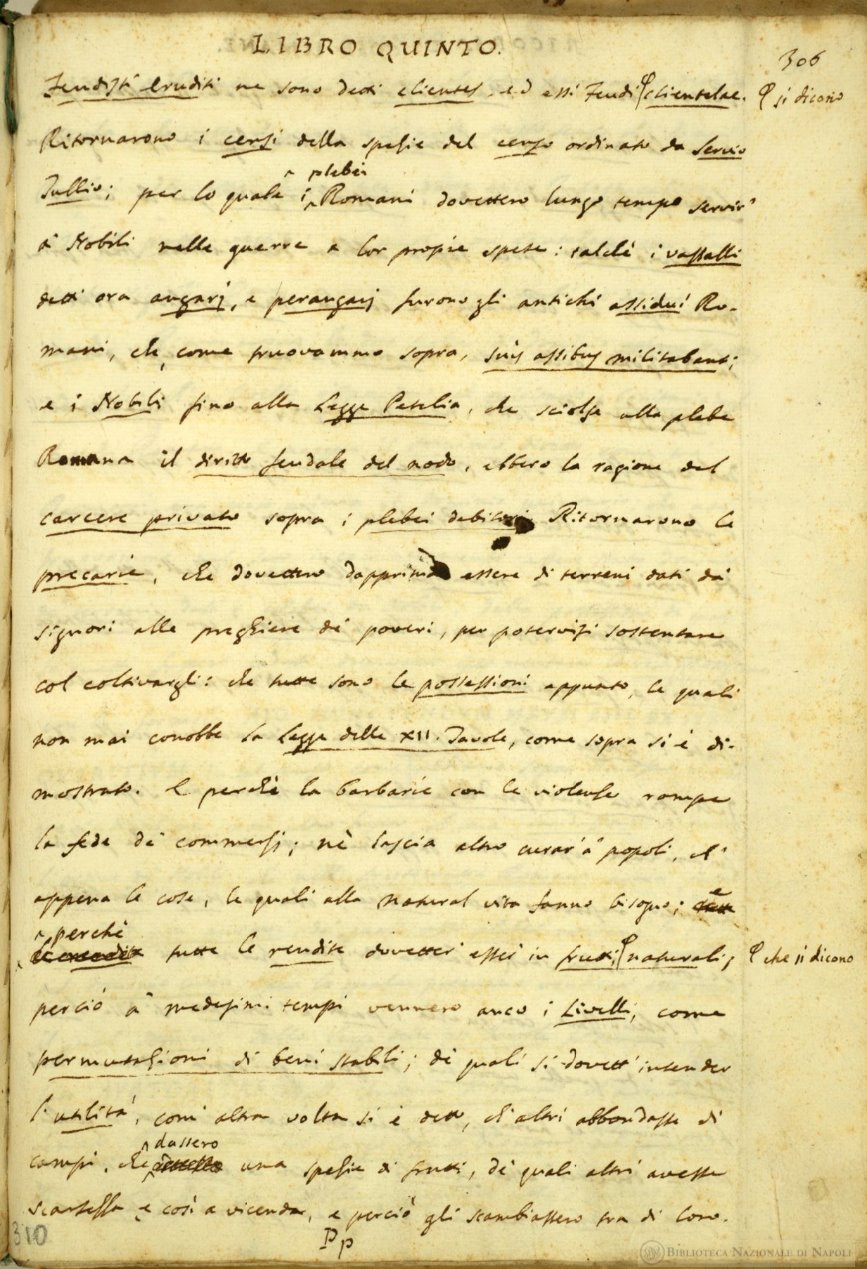 LIBRO QUINTO.
306
Feudisti Eruditi ne sono detti clientes, ed essi Feudi clientelae. si dicono
Ritornarono i censi della spezie del censo ordinato da Servio
plebei
Tullio; per lo quale i Romani dovettero lungo tempo servir'
a' Nobili nelle guerre a lor propie spese: talchè i vassalli
detti ora angarj, e perangarj furono gli antichi assidui Ro-
mani, che, come truovammo sopra, suis assibus militabant;
e i Nobili fino alla Legge Petelia, che sciolse alla plebe
Romana il diritto feudale del nodo, ebbero la ragione del
carcere privato sopra i plebei debitori Ritornarono le
precarie, che dovettero dapprima essere di terreni dati da'
signori alle preghiere de' poveri, per potervisi sostentare
col coltivargli: che tutte sono le possessioni appunto, le quali
non mai conobbe la Legge delle XII. Tavole, come sopra si è di-
mostrato. E perchè la barbarie con le violenze rompe
la fede de' commerzj; nè lascia altro curar' a' popoli, ch'
appena le cose, le quali alla natural vita fanno bisogno; e
perchè
tutte le rendite dovetter' esser in frutti, naturali; che si dicono
perciò a' medesimi tempi vennero anco i Livelli, come
permutazioni di beni stabili; de' quali si dovett' intender
l'utilità, com' altra volta si è detto, ch' altri abbondasse di
dassero
campi, che una spezie di frutti, de' quali altri avesse
scarsezza e così a vicenda, e perciò gli scambiassero tra di loro.
310
Pp
BIBLIOTECA NAZIONALE DI NAPOLI